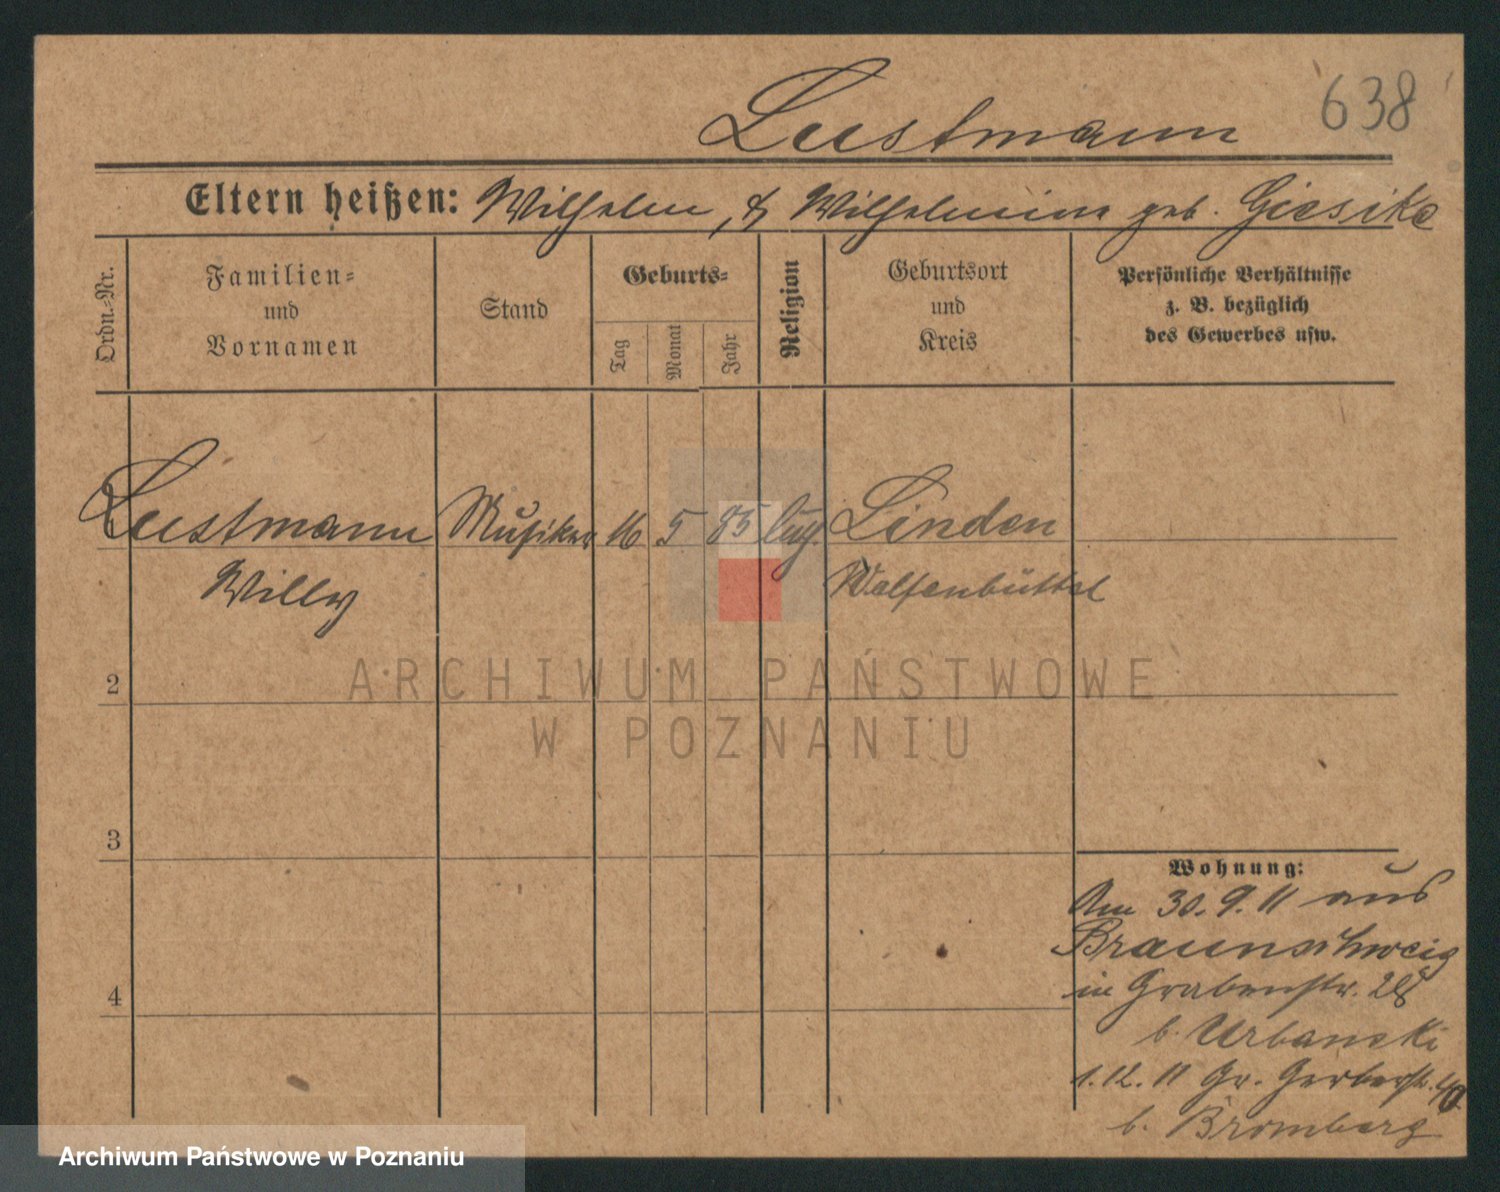 638
Lustmann
Eltern heißen: Wilhelm, & Wilhelmine geb. Giesike
Ordn.=Nr.
Familien=
und
Vornamen
Stand
Geburts=
Tag
Monat
Jahr
Religion
Geburtsort
und
Kreis
Persönliche Verhältnisse
z. B. bezüglich
des Gewerbes usw.
Lustmann Musiker 16 5 85 Linden
Willy Wolfenbüttel
2
3
4
Wohnung:
Am 30. 9. 11 aus
Braunschweig
in Grabenstr. 28
b. Urbanski
1. 12. 11 Gr. Gerberstr. 40
b. Bromberg
ARCHIWUM PAŃSTWOWE
W POZNANIU
Archiwum Państwowe w Poznaniu